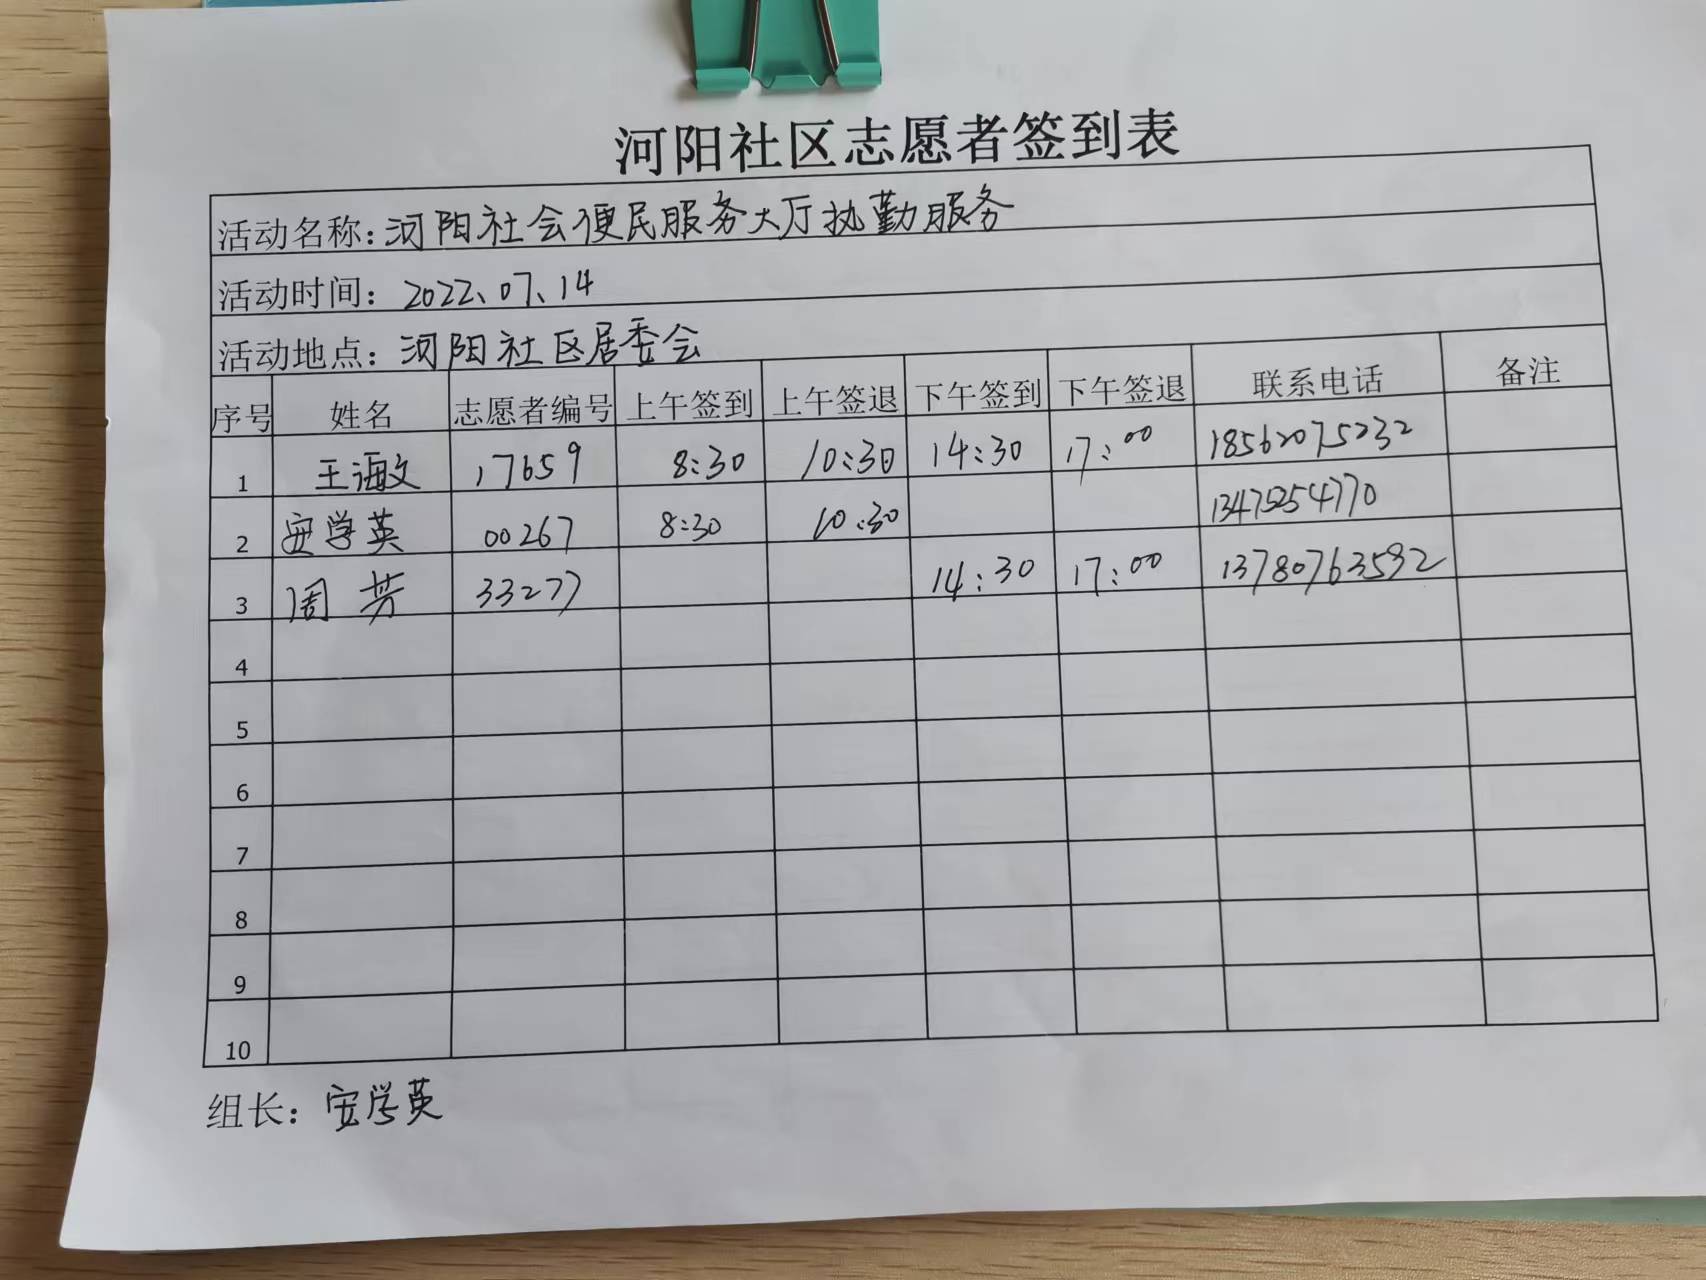 河阳社区志愿者签到表
活动名称:河阳社会便民服务大厅执勤服务
活动时间:2022、07、14
活动地点:河阳社区居委会
序号 姓名 志愿者编号 上午签到 上午签退 下午签到 下午签退 联系电话 备注
1 王海文 17659 8:30 10:30 14:30 17:00 18562075232
2 安学英 00267 8:30 10:30 13475254770
3 周芳 33277 14:30 17:00 13780763592
4
5
6
7
8
9
10
组长:安学英